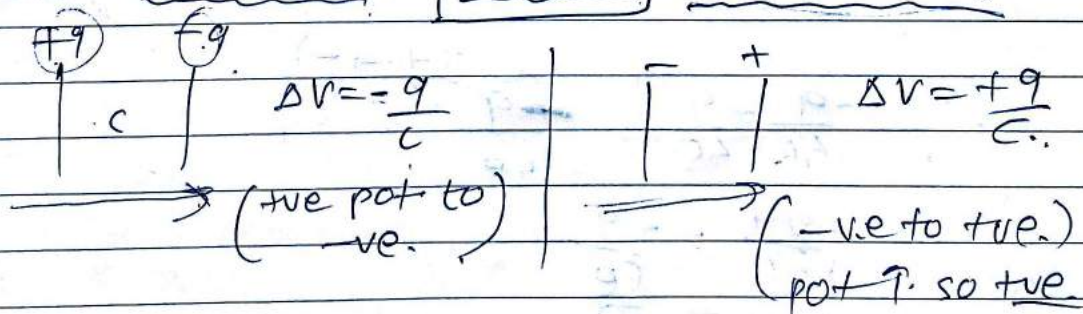 +q -q
C ΔV = -q/C
(+ve pot to -ve.)
- + ΔV = +q/C.
(-v.e to +ve.)
pot ↑. so +ve.